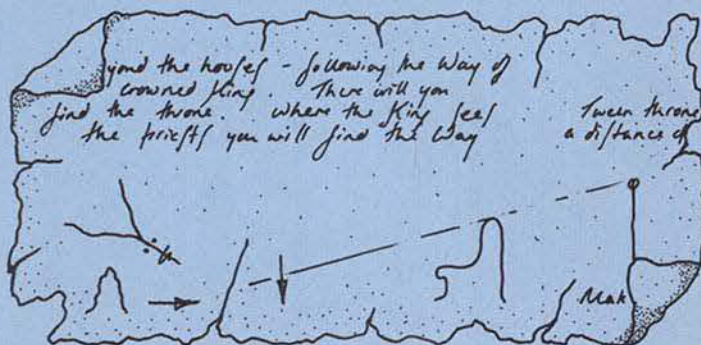 yond the houses - following the Way of
crowned King. There will you
find the throne. Where the King sees
the priests you will find the Way
Tween throne
a distance of
Mak